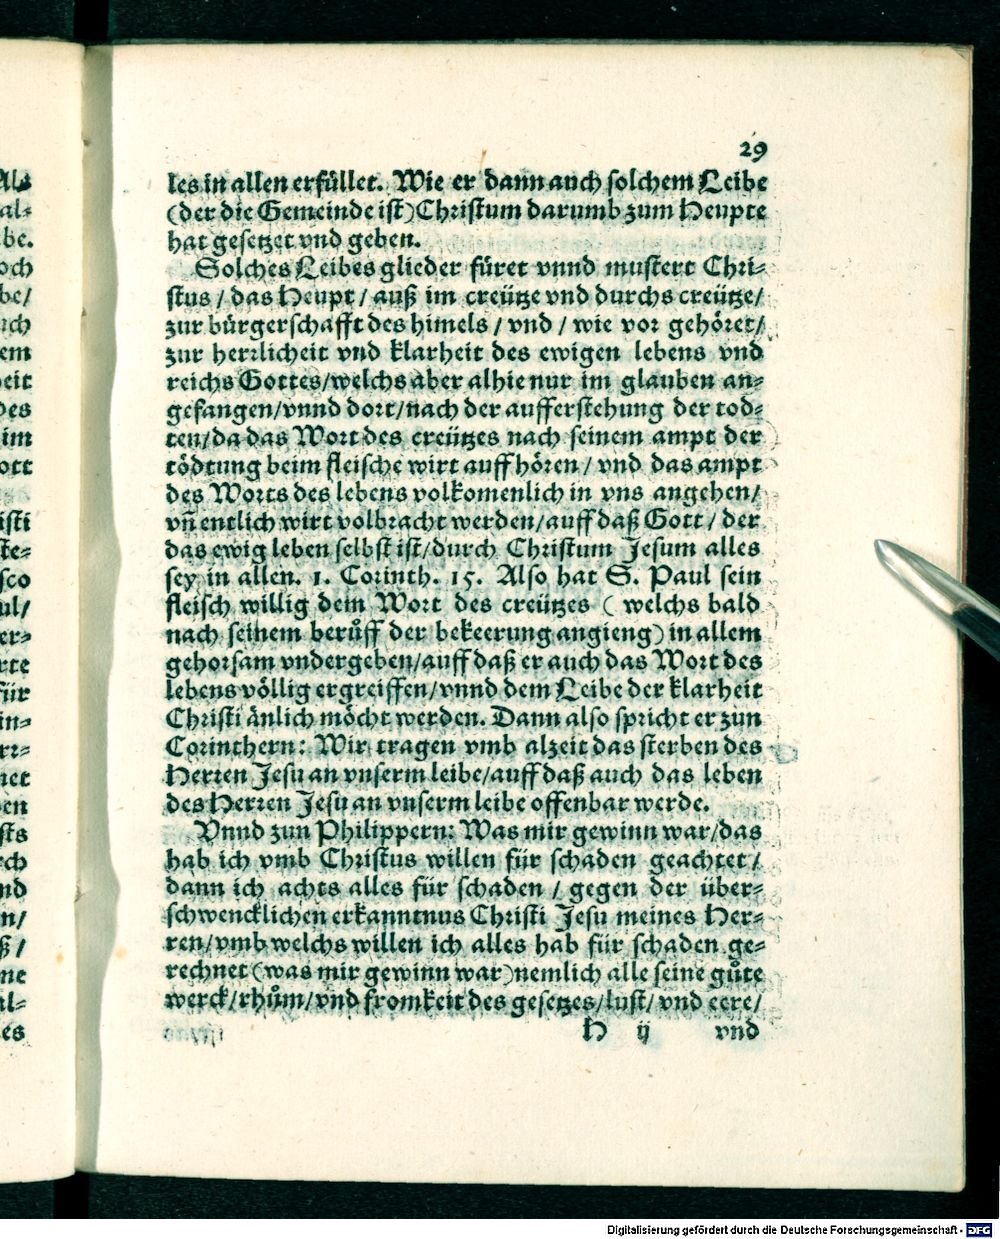 29
les in allen erfüllet. Wie er dann auch solchem Leibe
(der die Gemeinde ist) Christum darumb zum Heupte
hat gesetzet vnd geben.
Solches Leibes glieder füret vnnd mustert Chri-
stus / das Heupt / auß im creütze vnd durchs creütze/
zur bürgerschafft des himels / vnd / wie vor gehöret/
zur herrlicheit vnd klarheit des ewigen lebens vnd
reichs Gottes/welchs aber alhie nur im glauben an-
gefangen/vnnd dort/nach der aufferstehung der tod-
ten/da das Wort des creützes nach seinem ampt der
tödtung beim fleische wirt auff hören / vnd das ampt
des Worts des lebens volkomenlich in vns angehen/
vn̄ entlich wirt volbracht werden/auff daß Gott / der
das ewig leben selbst ist/durch Christum Jesum alles
sey in allen. 1. Corinth. 15. Also hat S. Paul sein
fleisch willig dem Wort des creützes ( welchs bald
nach seinem berůff der bekeerung angieng) in allem
gehorsam vndergeben/auff daß er auch das Wort des
lebens völlig ergreiffen/vnnd dem Leibe der klarheit
Christi änlich möcht werden. Dann also spricht er zun
Corinthern: Wir tragen vmb alzeit das sterben des
Herren Jesu an vnserm leibe/auff daß auch das leben
des Herren Jesu an vnserm leibe offenbar werde.
Vnnd zun Philippern: Was mir gewinn war/das
hab ich vmb Christus willen für schaden geachtet/
dann ich achts alles für schaden / gegen der über-
schwencklichen erkanntnus Christi Jesu meines Her-
ren/vmb welchs willen ich alles hab für schaden ge-
rechnet (was mir gewinn war) nemlich alle seine gůte
werck/rhům/vnd fromkeit des gesetzes/lust/vnd eere/
H ij vnd
Digitalisierung gefördert durch die Deutsche Forschungsgemeinschaft - DFG